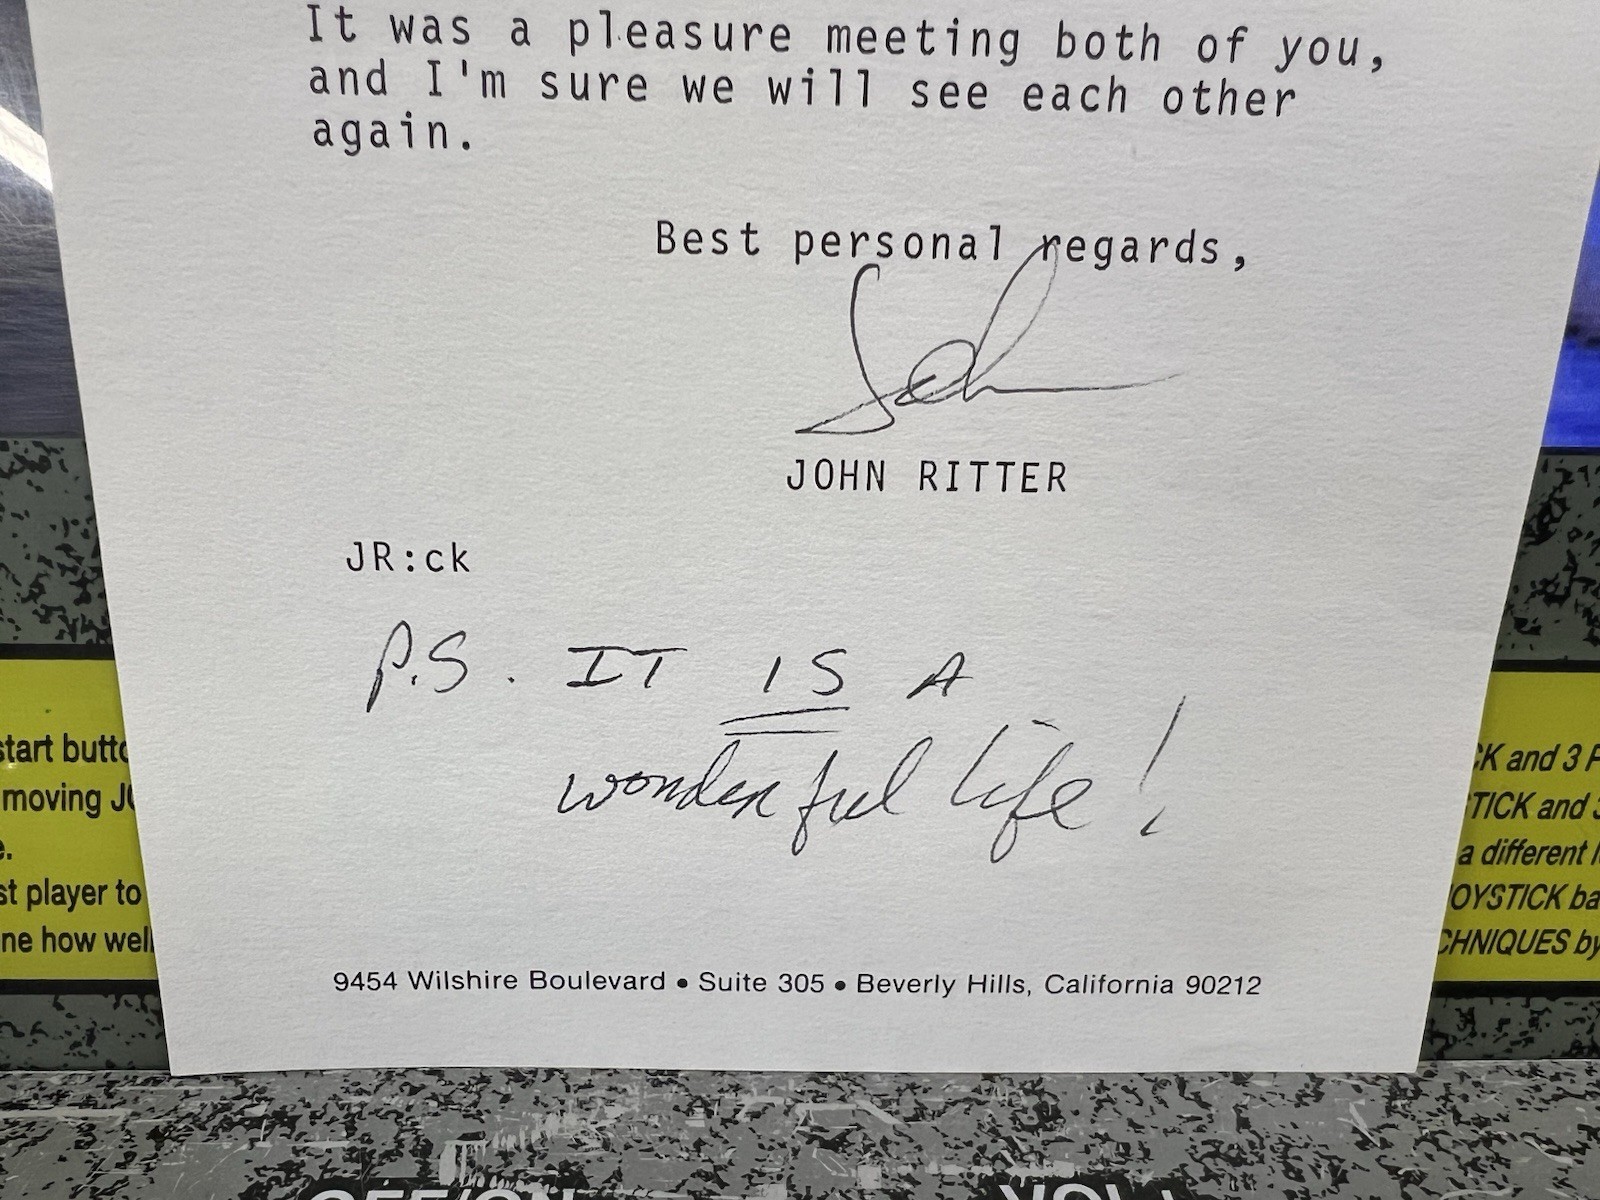 It was a pleasure meeting both of you,
and I'm sure we will see each other
again.
Best personal regards,
John
JOHN RITTER
JR:ck
P.S. IT IS A
wonderful life!
9454 Wilshire Boulevard • Suite 305 • Beverly Hills, California 90212
start butto
moving JO
e.
st player to
ne how well
CK and 3 P
TICK and 3
a different l
OYSTICK ba
CHNIQUES by
OFF/ON
VOL